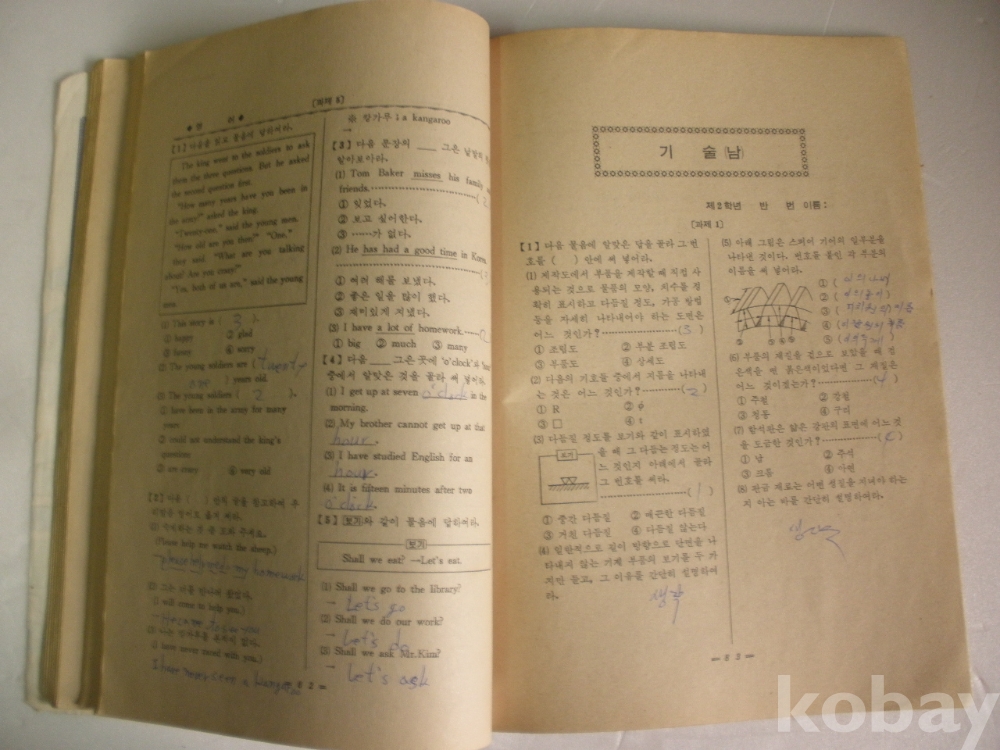 ◆영 어◆
[과제 8]
【1】다음을 읽고 물음에 답하여라.
The king went to the soldiers to ask
them the three questions. But he asked
the second question first.
"How many years have you been in
the army?" asked the king.
"Twenty-one," said the young men.
"How old are you then?" "One,"
they said. "What are you talking
about? Are you crazy?"
"Yes, both of us are," said the young
men.
(1) This story is ( 2 ).
① happy ② glad
③ funny ④ sorry
(2) The young soldiers are (twenty
one) years old.
(3) The young soldiers ( 2 ).
① have been in the army for many
years
② could not understand the king's
questions
③ are crazy ④ very old
(Please help me watch the sheep.)
(I will come to help you.)
(I have never moved with you.)
캉가루 : a kangaroo
→
【3】다음 문장의 ___ 그은 낱말의
알아보아라.
(1) Tom Baker misses his family
friends.
① 잊었다.
② 보고 싶어한다.
③ ……가 없다.
(2) He has had a good time in Korea.
① 여러 해를 보냈다.
② 좋은 일을 많이 했다.
③ 재미있게 지냈다.
(3) I have a lot of homework.
① big ② much ③ many
【4】다음 ___ 그은 곳에 'o'clock'와
중에서 알맞은 것을 골라 써 넣어라.
(1) I get up at seven o'clock in the
morning.
(2) My brother cannot get up at that
hour.
(3) I have studied English for an
hour.
(4) It is fifteen minutes after two
o'clock.
【5】보기와 같이 물음에 답하여라.
보기
Shall we eat? →Let's eat.
(1) Shall we go to the library?
→ Let's go
(2) Shall we do our work?
→ Let's do
(3) Shall we ask Mr. Kim?
→ Let's ask
62
기 술(남)
제2학년 반 번 이름:
[과제 1]
【1】다음 물음에 알맞은 답을 골라 그 번
호를 ( ) 안에 써 넣어라.
(1) 제작도에서 부품을 제작할 때 직접 사
용되는 것으로 물품의 모양, 치수를 정
확히 표시하고 다듬질 정도, 가공 방법
등을 자세히 나타내어야 하는 도면은
어느 것인가?…………(3)
① 조립도 ② 부분 조립도
③ 부품도 ④ 상세도
(2) 다음의 기호들 중에서 지름을 나타내
는 것은 어느 것인가?…………(2)
① R ② φ
③ □ ④ t
(3) 다듬질 정도를 보기와 같이 표시하였
을 때 그 다듬는 정도는 어
느 것인지 아래에서 골라
그 번호를 써라.
…………(1)
보기
① 중간 다듬질 ② 매끈한 다듬질
③ 거친 다듬질 ④ 다듬질 않는다
(4) 일반적으로 길이 방향으로 단면을 나
타내지 않는 기계 부품의 보기를 두 가
지만 들고, 그 이유를 간단히 설명하여
라.
생략
(5) 아래 그림은 스퍼어 기어의 일부분을
나타낸 것이다. 번호를 붙인 각 부분의
이름을 써 넣어라.
(6) 부품의 재질을 겉으로 보았을 때 검
은색을 띤 붉은색이었다면 그 재질은
어느 것이겠는가?…………(4)
① 주철 ② 강철
③ 청동 ④ 구리
(7) 함석판은 얇은 강판의 표면에 어느 것
을 도금한 것인가?
① 납 ② 주석
③ 크롬 ④ 아연
(8) 판금 재료는 어떤 성질을 지녀야 하는
지 아는 바를 간단히 설명하여라.
생략
63
kobay